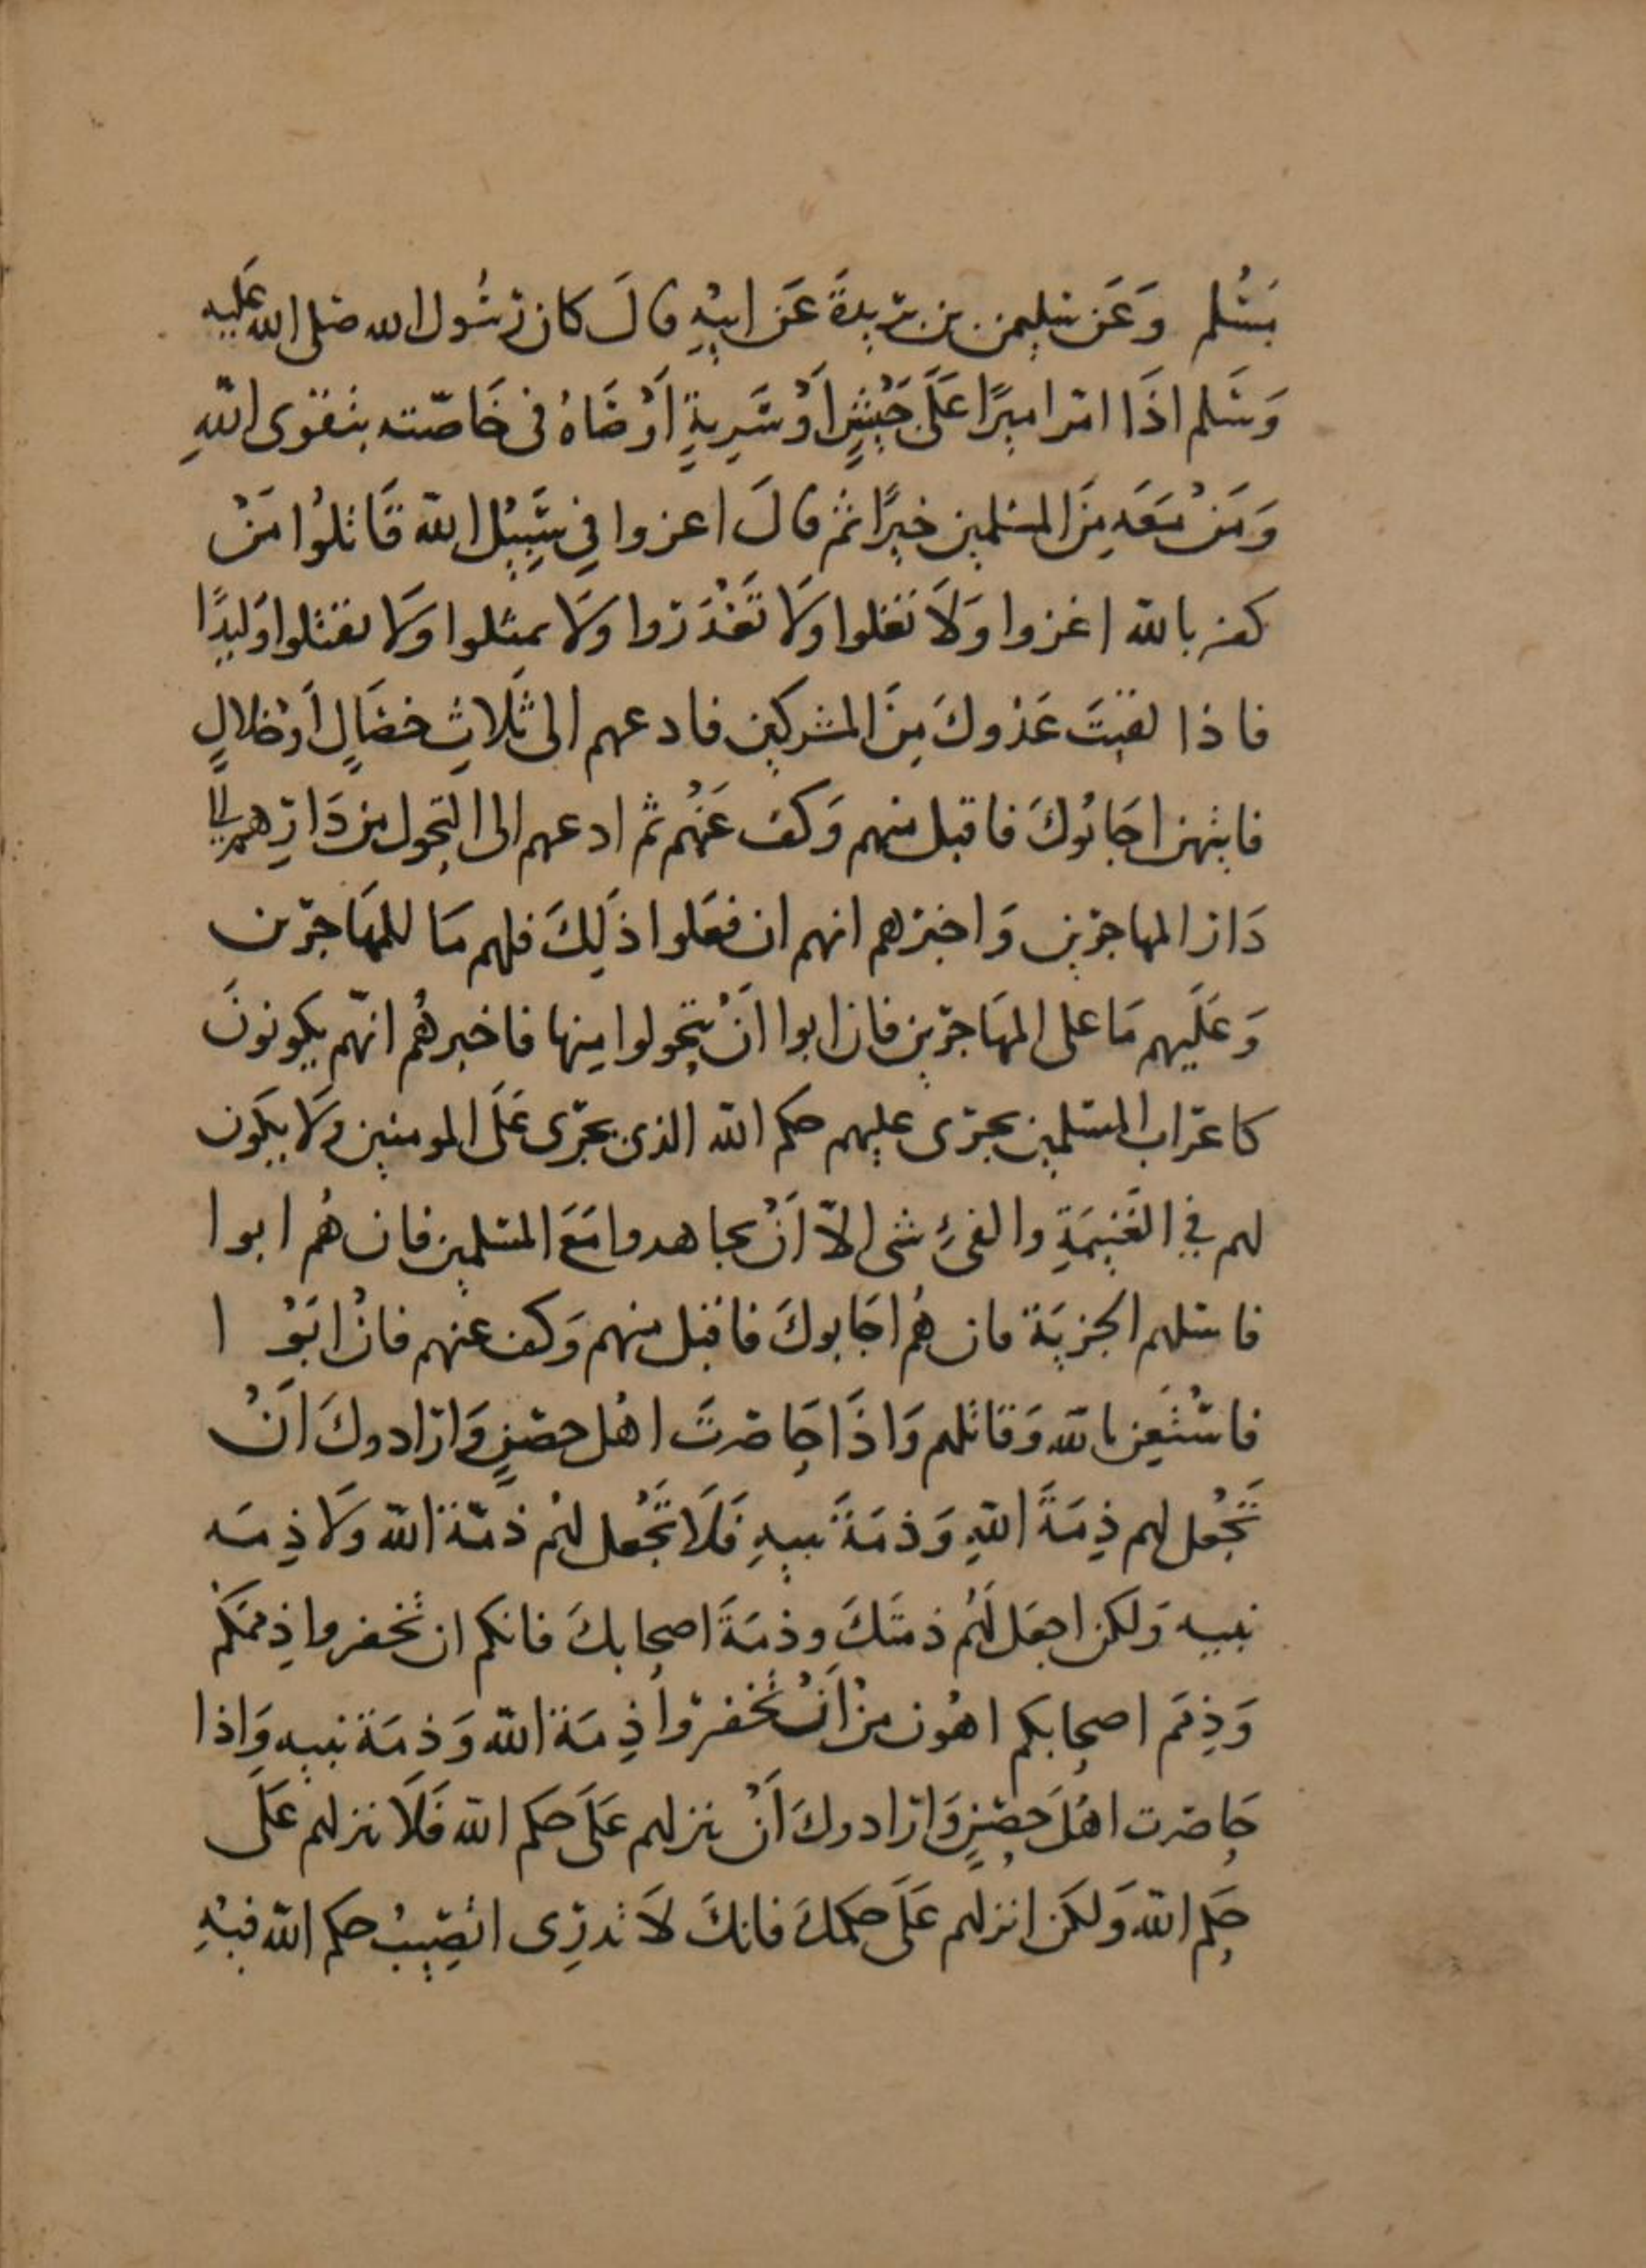 يُسْلم وَعَن سليمن بن بريدةَ عَن ابيْهِ قالَ كان رسُول الله صلى الله عَليه
وَسَلم اذَا امر اميرًا عَلَى جَيْشٍ اَوْ سَرِيةٍ اَوْصَاهُ فى خَاصّته بتقوى اللّهِ
وَمَنْ مَعَه مِنَ المسلمين خيرًا ثم قالَ اغزوا فِي سَبِيْل اللّه قَاتلُوا مَنْ
كفر باللّه اغزوا وَلاَ تغلوا وَلَا تَغْدَروا وَلَا تمثلوا وَلَا تقتلوا وَليدًا
فاذا لقيتَ عَدوكَ مِنَ المشركين فادعهم الى ثَلاثِ خصَالٍ اَوْ خلالٍ
فايتهن اجَابُوكَ فاقبل منهم وَكف عَنْهُم ثم ادعهم الى التحول من دَارِهم الى
دَار المهاجرين وَاخبرهم انهم ان فعَلوا ذَلِكَ فلهم مَا للمهَاجرين
وَعَلَيهم مَا على المهَاجرين فان ابوا اَنْ يتحولوا مِنها فاخبرهُم انهّم يكونونَ
كاعراب المسلمين يجرى عليهم حكم اللّه الذى يجرى عَلَى المومنين وَلَا يكَون
لهم فِي الغَنِيمَةِ والفىءِ شى الاّ اَنْ يجاهدوا مَعَ المسلمين فان هُم ابوا
فاسلهم الجزيَة فان هُم اجَابوكَ فاقبل منهم وَكف عنهم فانْ ابَوْا
فاسْتَعِن باللّه وَقاتلهم وَاذَا حَاصرتَ اهْل حصْنٍ وَارادوكَ اَنْ
تَجْعل لهم ذِمَةَ اللّهِ وَذمَةَ نبيهِ فَلَا تَجْعل لهُم ذمّة اللّه وَلَا ذِمَه
نبيه وَلكن اجعَل لَهُم ذمتَكَ وذمَةَ اصحابكَ فانكم ان تخفروا ذِممَكُم
وَذِمَم اصحابكم اهْون من اَنْ تُخْفروا ذِمَة اللّه وَذِمَة نبيه وَاذا
حَاصرت اهْلَ حِصْنٍ وَارادوكَ اَنْ تنزلهم عَلَى حكم اللّه فَلَا تنزلهم عَلَى
حكم اللّه وَلكن انزلهم عَلَى حكمكَ فانكَ لاَ تدرِى اتُصِيْبُ حكم اللّه فيْهِ